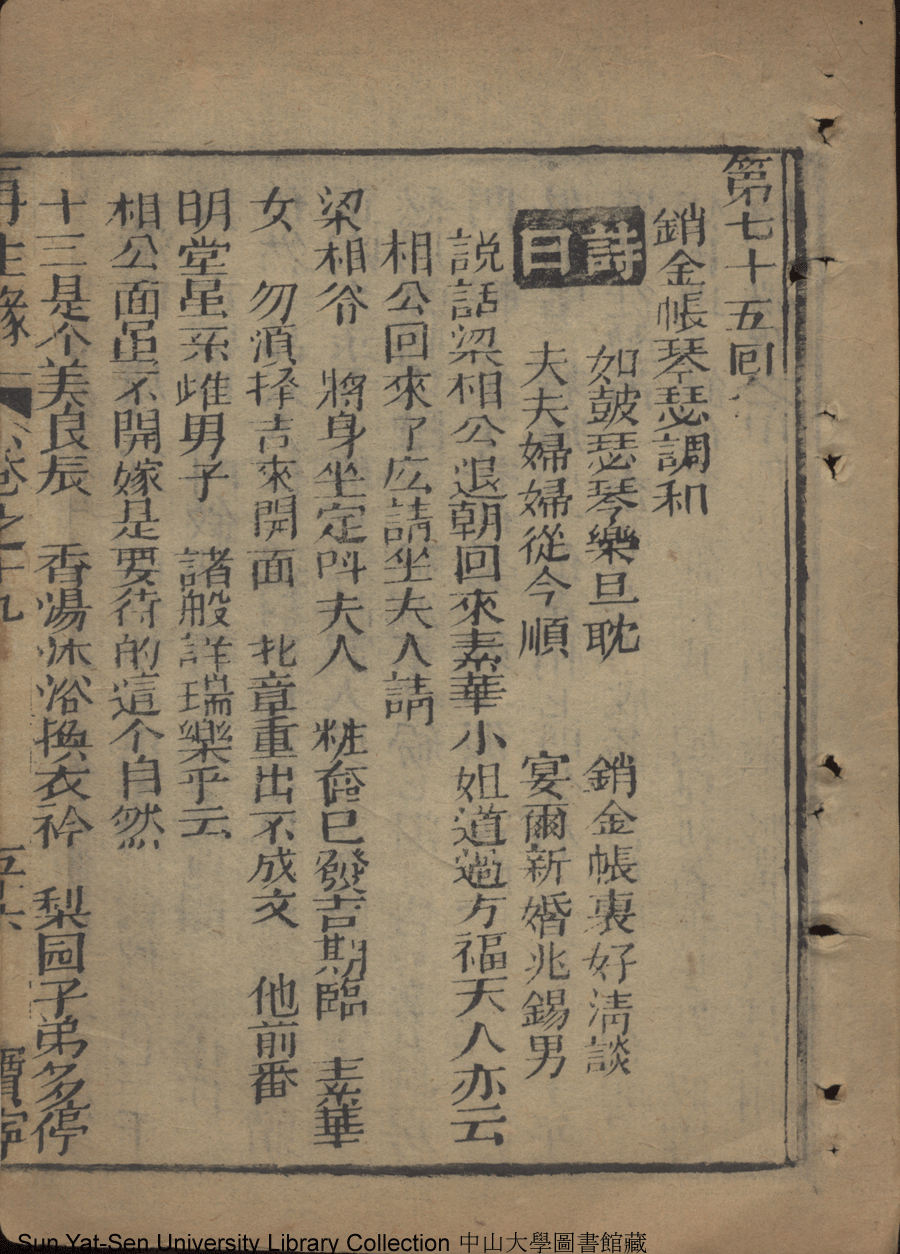 第七十五回
銷金帳琴瑟調和
詩曰
如皷瑟琴樂且耽 銷金帳裏好清談
夫夫婦婦從今順 宴爾新婚兆錫男
説話梁相公退朝回來素華小姐道過万福夫人亦云
相公回來了広請坐夫人請
梁相爷 將身坐定呌夫人 粧奩已發吉期臨 素華
女 勿湏择吉來開面 北章重出不成文 他前番
明堂虽系雌男子 諸般詳瑞樂乎云
相公面虽不開嫁是要待的這个自然
十三是个美良辰 香湯沐浴換衣衿 梨园子弟多停
再生緣 卷之十九 五十六 寶寧
Sun Yat-Sen University Library Collection 中山大學圖書館藏